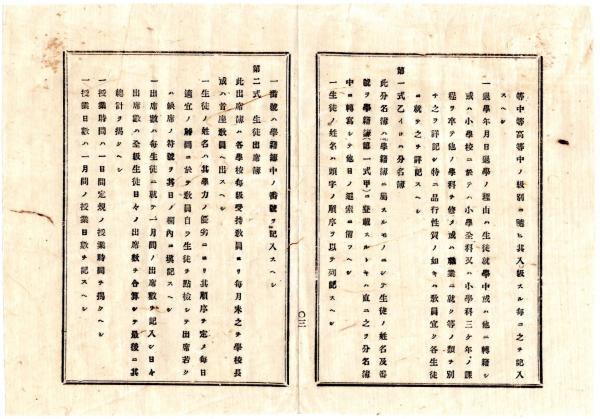 等中等高等中ノ級別ニ隨ヒ其入級スル每ニ之ヲ記入
スヘシ
一退學年月日退學ノ理由ハ生徒就學中或ハ他ニ轉籍シ
或ハ小學校ニ於テハ小學全科又ハ小學科三ケ年ノ課
程ヲ卒テ他ノ學科ヲ修メ或ハ職業ニ就ク等ノ類ヲ別
チ之ヲ詳記シ特ニ品行性質ノ如キハ敎員宜ク各生徒
ニ就テ之ヲ詳記スヘシ
第一式乙イロハ分名簿
此分名簿ハ學籍簿ニ屬スルモノニシテ生徒ノ姓名及番
號ヲ學籍簿(第一式甲)ニ登載スルトキハ直ニ之ヲ分名簿
中ニ轉寫シテ他日ノ追索ニ備フヘシ
一生徒ノ姓名ハ頭字ノ順序ヲ以テ列記スヘシ
〇三
一番號ハ學籍簿中ノ番號ヲ記入スヘシ
第二式 生徒出席簿
此出席簿ハ各學校每級受持敎員ヨリ每月末之ヲ學校長
或ハ首座敎員ヘ出スヘシ
一生徒ノ姓名ハ其學力ノ優劣ニヨリ其順序ヲ定メ每日
適宜ノ時間ニ於テ敎員自ラ生徒ヲ點檢シテ出席若ク
ハ缺席ノ符號ヲ其日ノ欄內ニ塡記スヘシ
一出席數ハ每生徒ニ就テ一月間ノ出席數ヲ記入シ日々
出席數ハ全級生徒日々ノ出席數ヲ合算シテ最後ニ其
總計ヲ揭クヘシ
一授業時間ハ一日間定規ノ授業時間ヲ揭クヘシ
一授業日數ハ一月間ノ授業日數ヲ記スヘシ